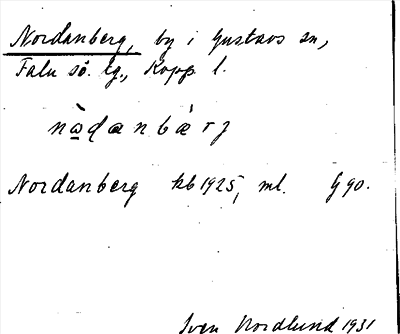 Nordanberg, by i Gustavs sn,
Falu sö. tg., Kopp l.
nɑ̀̀ḍanbærj
Nordanberg kb 1925, ml. G 90.
Sven Nordlund 1931